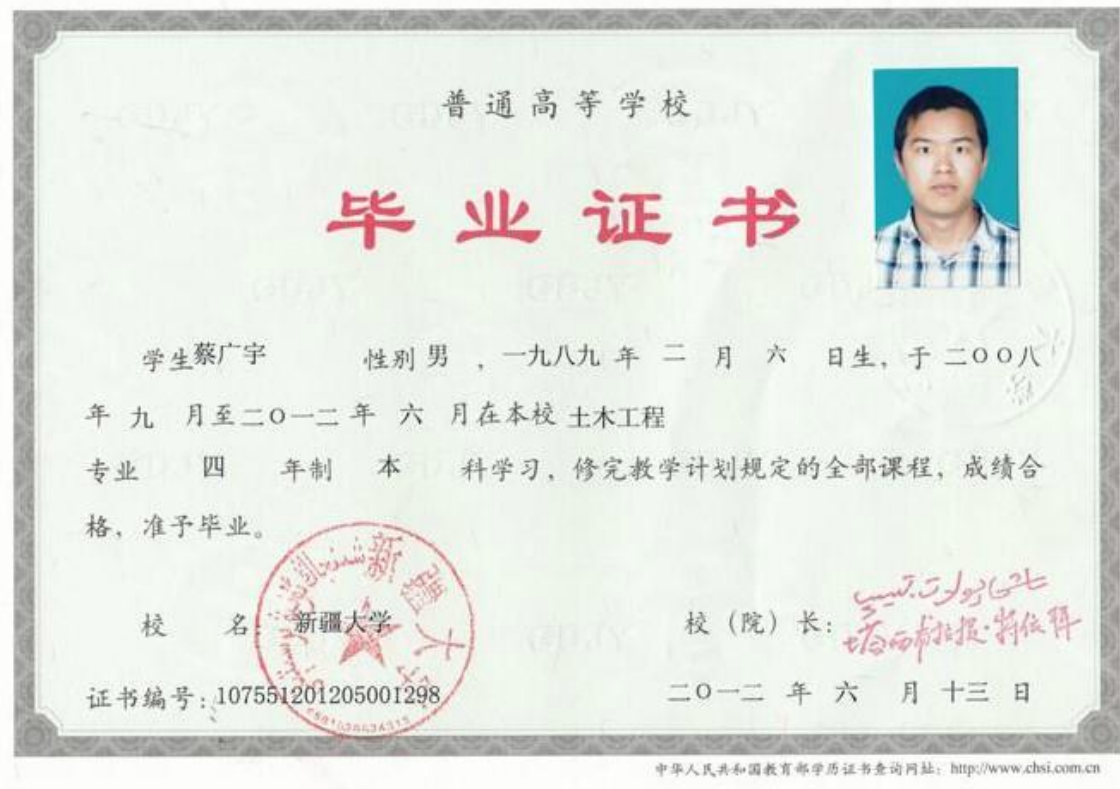 普通高等学校
毕业证书
学生蔡广宇 性别 男 ，一九八九 年 二 月 六 日生，于 二〇〇八
年 九 月至二〇一二 年 六 月在本校 土木工程
专业 四 年制 本 科学习，修完教学计划规定的全部课程，成绩合
格，准予毕业。
校 名：新疆大学
校（院）长：
塔西甫拉提·特依拜
新疆大学
证书编号：107551201205001298
二〇一二 年 六 月 十三 日
中华人民共和国教育部学历证书查询网址：http://www.chsi.com.cn